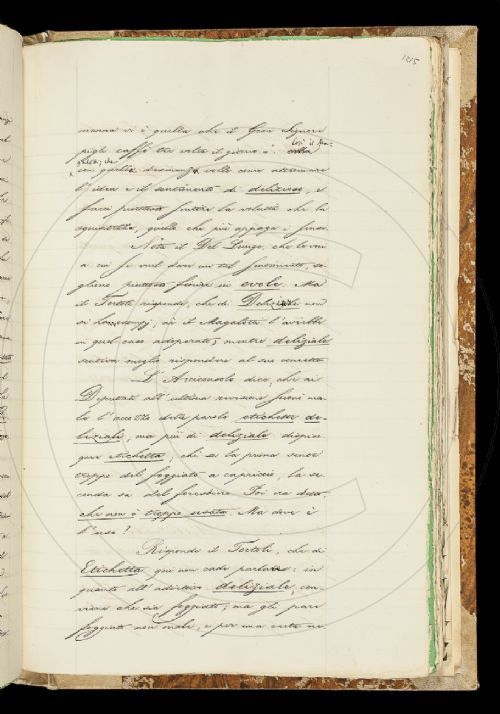 1215
manna vi è quella che il Gran Signore
piglia caffè tre volte il giorno e
così il
con quella desinenza volle come attenuare
l'idea e il sentimento di delizioso, e
farci piuttosto sentire la voluttà che la
squisitezza, quella che più appaga i sensi.
Nota il Del Lungo, che le voci
a cui si vuol dare un tal
piuttosto finire in evole. Ma
il Tortoli risponde, che di
si ha esempj, nè il Magalotti l'avrebbe
in quel caso adoperato; mentre deliziale
sentiva meglio rispondere al suo concetto
L'Arciconsolo dice, che ai
Deputati all'ultima revisione fecesi no-
to l'eccesso della parola etichetta de-
liziale, ma più di deliziale dispiac-
que etichetta; chè se la prima sente
troppo del foggiato a capriccio, la se-
conda sa del forestiero. Poi va detto
che non è troppo usata. Ma dove è
l'uso?
Risponde il Tortoli, che di
Etichetta qui non cade parlare: in
quanto all'addiettivo deliziale, con-
viene che sia foggiato; ma gli pare
foggiato non male, e per una certa ne-